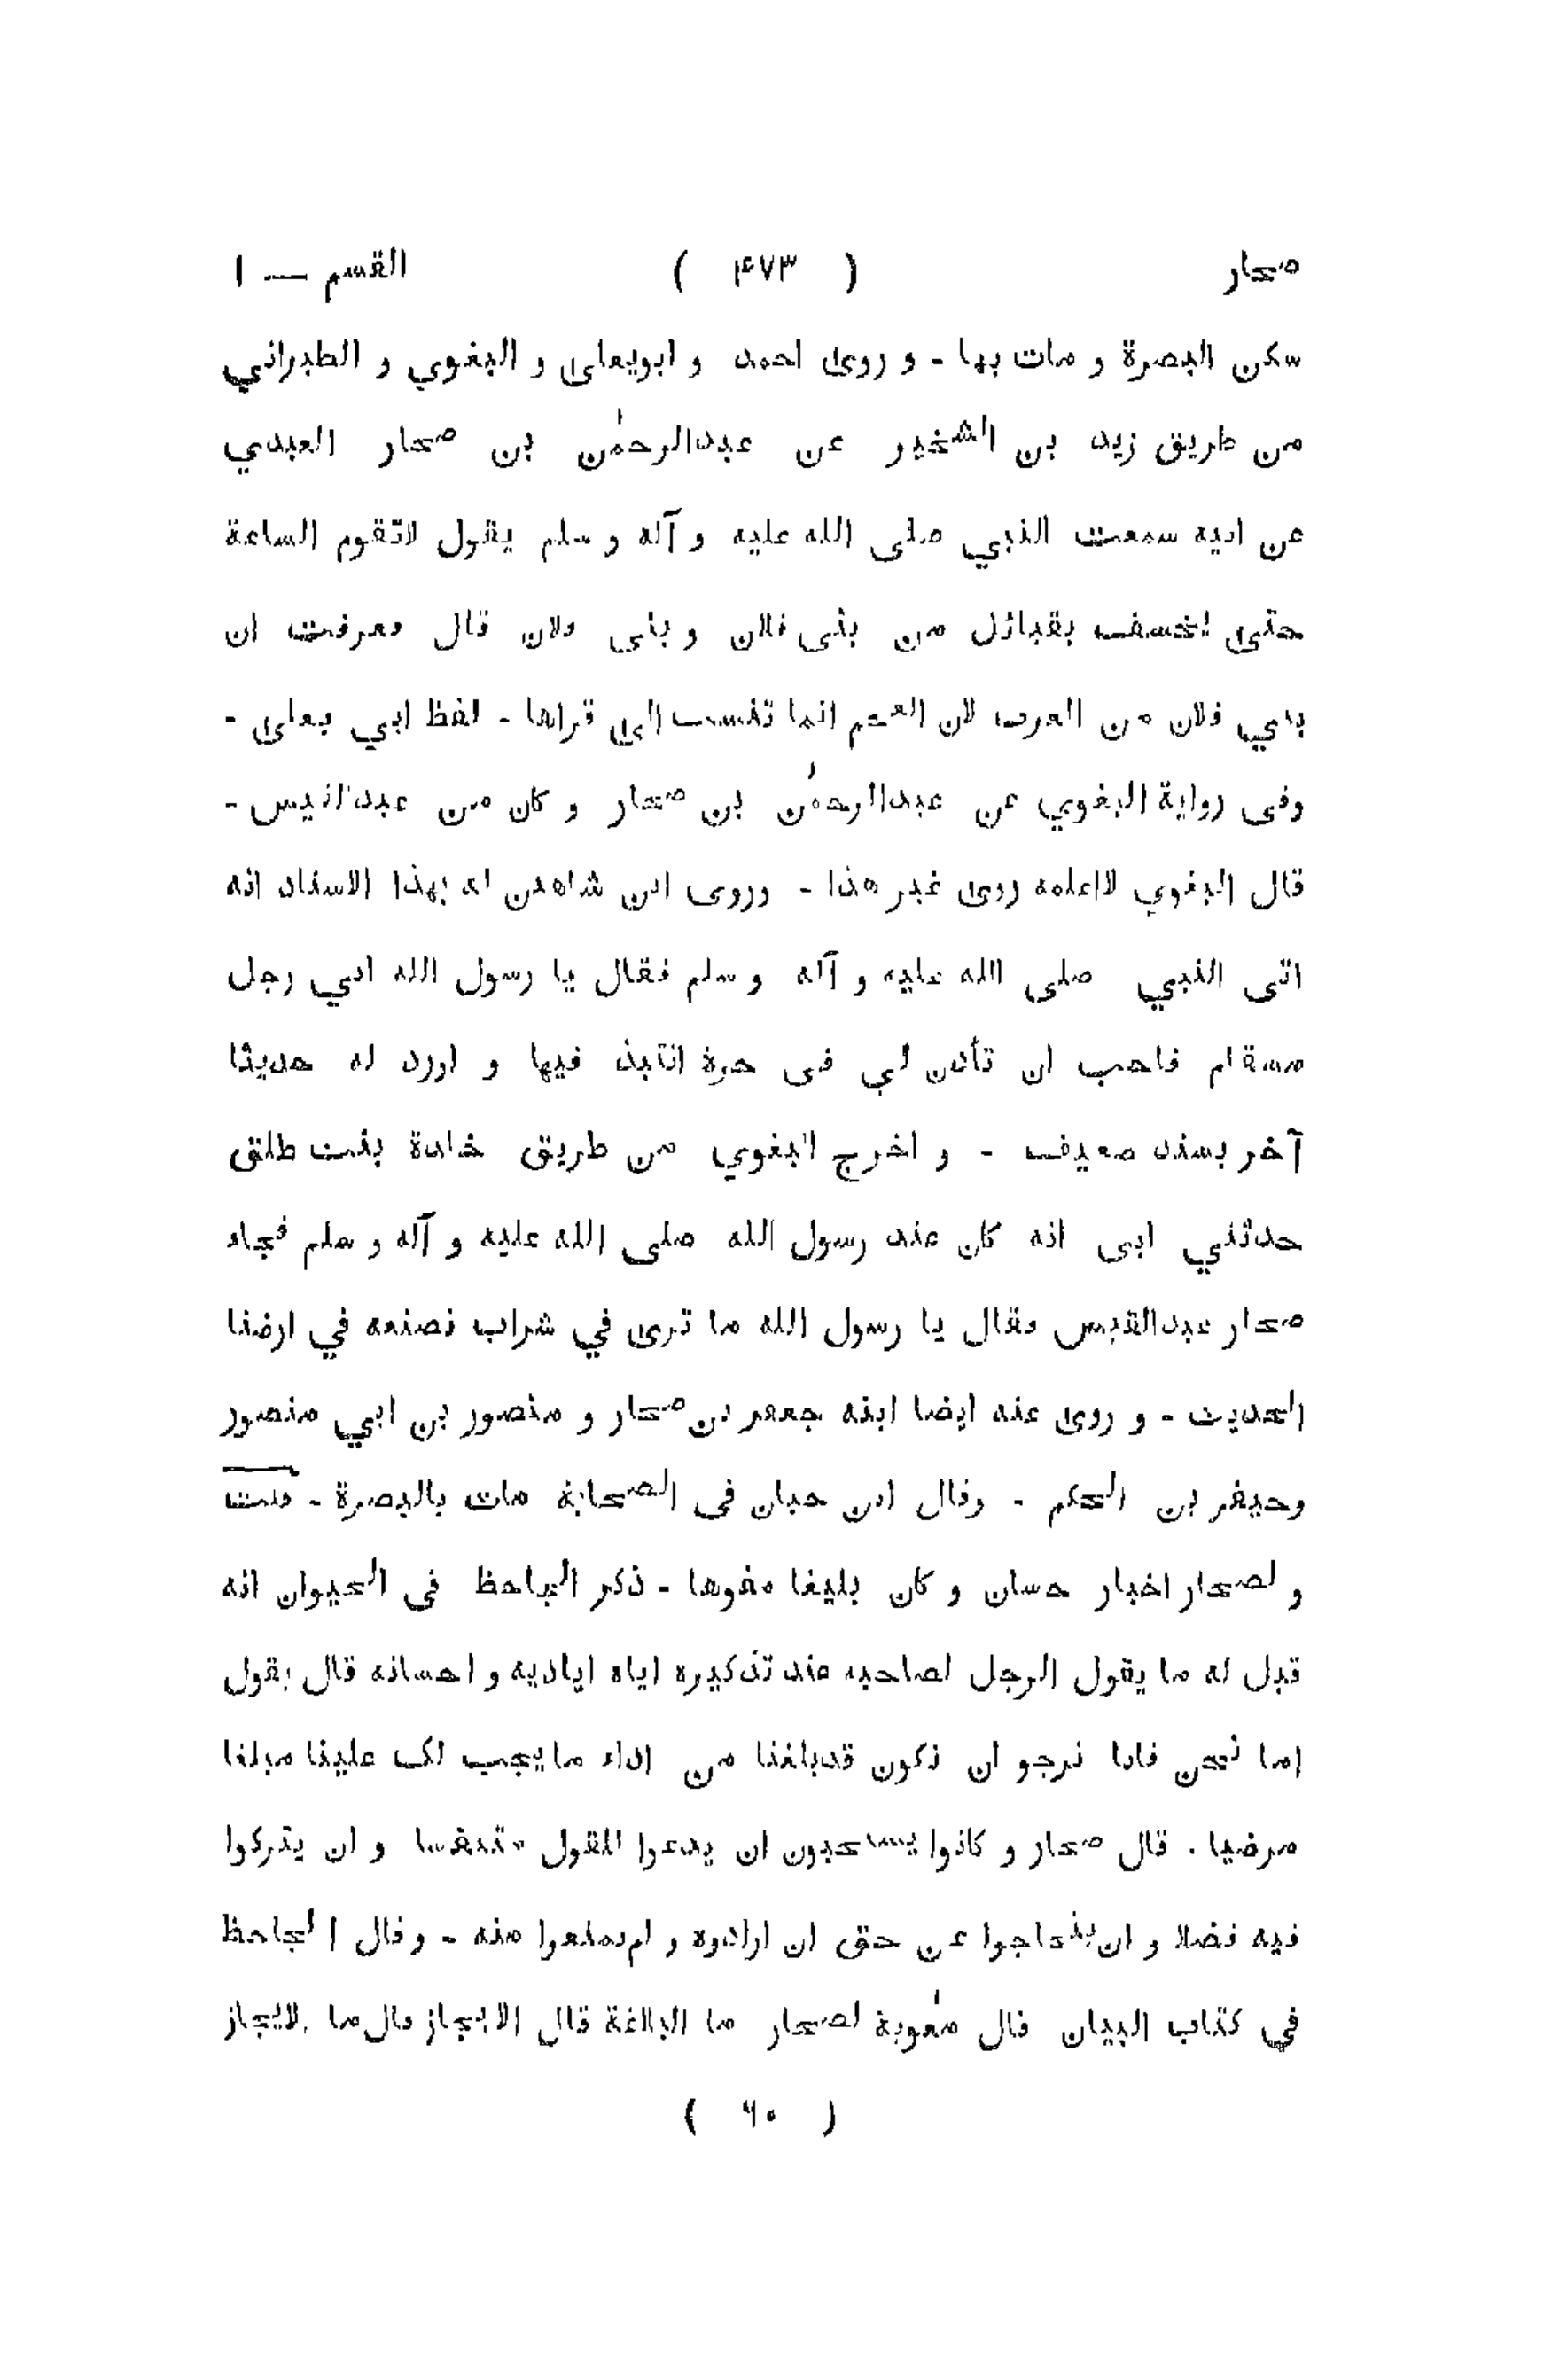 صحار ( ۴۷۳ ) القسم — ١
سكن البصرة و مات بها - و روى احمد و ابويعلى و البغوي و الطبراني
من طريق زيد بن الشخير عن عبدالرحمٰن بن صحار العبدي
عن ابيه سمعت النبي صلى الله عليه و آله و سلم يقول لاتقوم الساعة
حتى يخسف بقبائل من بنى فلان و بنى فلان قال فعرفت ان
بني فلان من العرب لان العجم انما تنسب الى قراها - لفظ ابي يعلى -
وفى رواية البغوي عن عبدالرحمٰن بن صحار و كان من عبدالقيس -
قال البغوي لااعلمه روى غير هذا - وروى ابن شاهين له بهذا الاسناد انه
اتى النبي صلى الله عليه و آله و سلم فقال يا رسول الله اني رجل
مسقام فاحب ان تأذن لي فى جرة انتبذ فيها و اورد له حديثا
آخر بسند ضعيف - و اخرج البغوي من طريق خلدة بنت طلق
حدثني ابى انه كان عند رسول الله صلى الله عليه و آله و سلم فجاء
صحار عبدالقيس فقال يا رسول الله ما ترى في شراب نصنعه في ارضنا
الحديث - و روى عنه ايضا ابنه جعفر بن صحار و منصور بن ابي منصور
وجيفر بن الحكم - وقال ابن حبان فى الصحابة مات بالبصرة - قلت
و لصحار اخبار حسان و كان بليغا مفوها - ذكر الجاحظ فى الحيوان انه
قيل له ما يقول الرجل لصاحبه عند تذكيره اياه اياديه و احسانه قال يقول
اما نحن فانا نرجو ان نكون قدبلغنا من اداء مايجب لك علينا مبلغا
مرضيا . قال صحار و كانوا يستحبون ان يدعوا للقول متنفسا و ان يتركوا
فيه فضلا و ان يتحاجوا عن حق ان ارادوه و لم يمنعوا منه - وقال الجاحظ
في كتاب البيان قال معٰوية لصحار ما البلاغة قال الايجاز قال ما الايجاز
( ۶۰ )